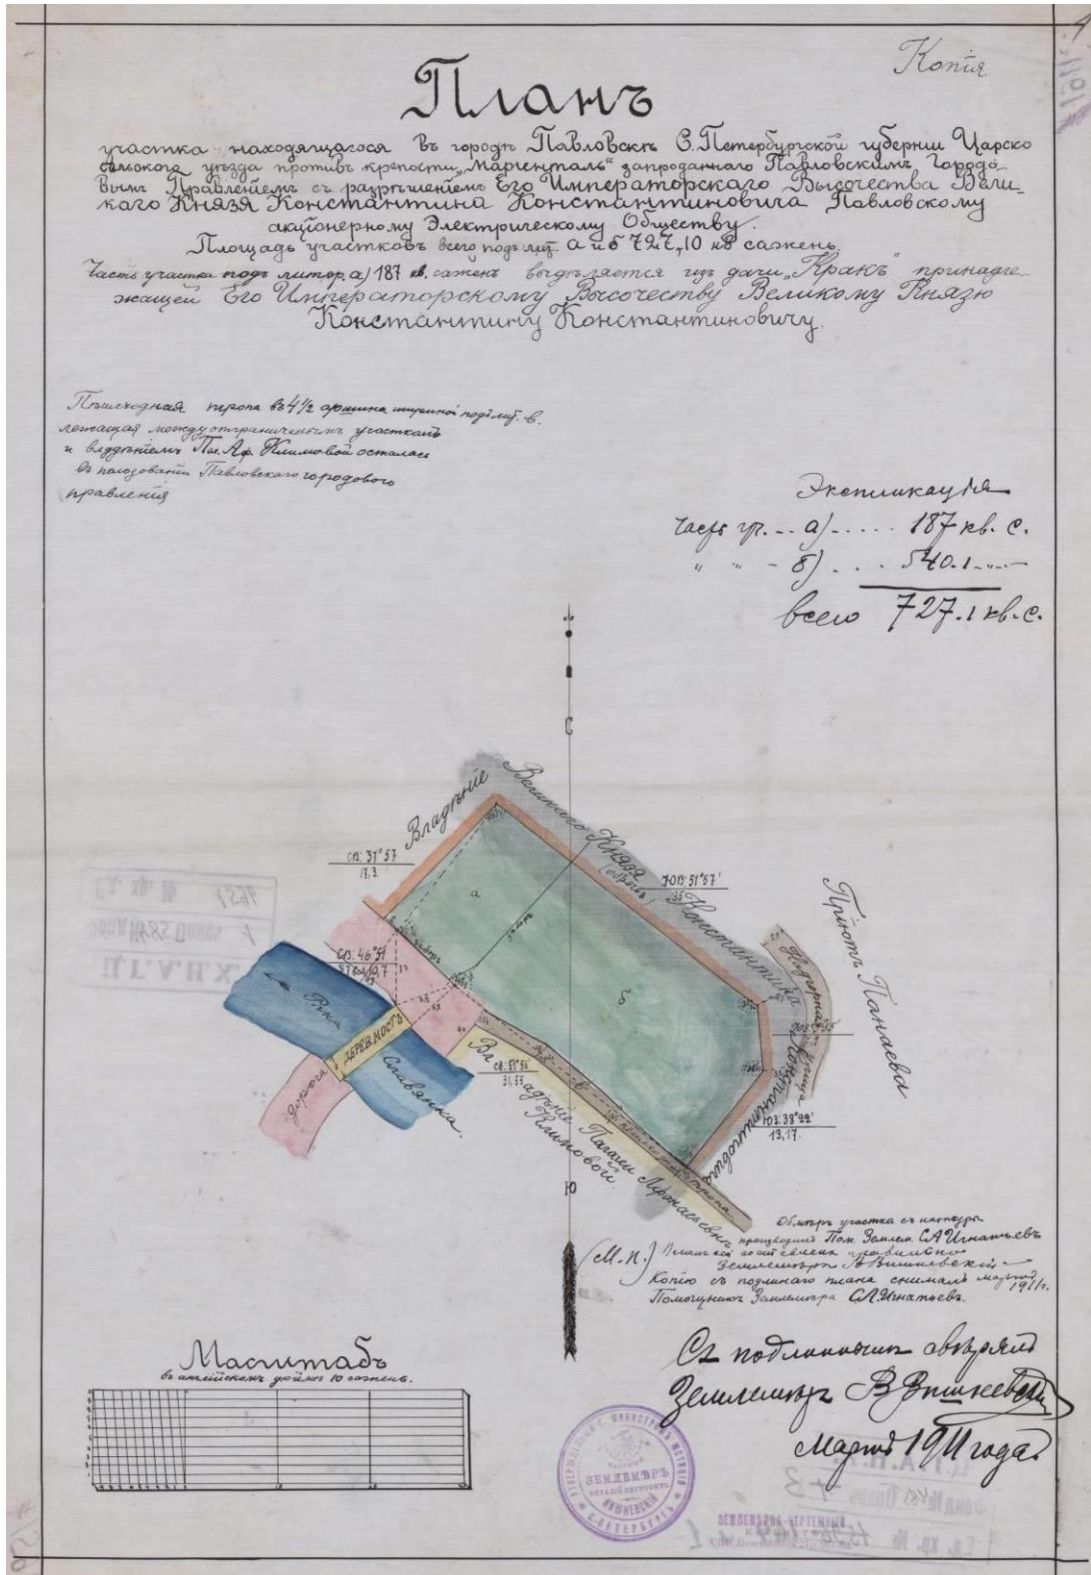 Копія
Планъ
участка находящагося въ городѣ Павловскѣ С.Петербургской губерніи Царско
сельскаго уѣзда противъ крепости „Маріенталь“ запроданнаго Павловскимъ Городо-
вымъ Правленіемъ съ разрѣшеніемъ Его Императорскаго Высочества Вели-
каго Князя Константина Константиновича Павловскому
акціонерному Электрическому Обществу.
Площадь участковъ всего подъ лит. а и б 727,10 кв сажень.
Часть участка подъ литер. а) 187 кв. сажень выдѣляется изъ дачи „Кракъ“ принадле-
жащей Его Императорскому Высочеству Великому Князю
Константину Константиновичу.
Пѣшеходная тропа въ 4 1/2 аршина шириной подъ лит. в.
лежащая между отграниченнымъ участкомъ
и владѣніемъ Пел. Аф. Климовой осталась
въ пользованіи Павловскаго городового
правленія
Экспликація
Часть уч. а) 187 кв. с.
" " б) 540.1
всего 727.1 кв. с.
С
Владѣніе Великаго Князя Константина Константиновича
св: 37°57
17,3
ЮВ: 51°57'
35
а
заборъ
б
Пріютъ Панаева
Подгорная улица
св: 46°51
10,7
Рѣка
Славянка.
ДЕРЕВ. МОСТЪ
дорога
в
пешеходная тропа
св: 51°56
31,55
Владѣніе Пелагеи Афанасьевны
Климовой.
ЮЗ: 38°22'
13,17.
Ю
Обмѣръ участка съ натуры
производилъ Пом. Землем. С А Игнатьевъ
(М.п.) Планъ сей составленъ правильно
Землемѣръ В Вишневскій
Копію съ подлиннаго плана снималъ мартъ 1911 г.
Помощникъ Землемѣра С.А. Игнатьевъ.
Съ подлиннымъ свѣрялъ
Землемѣръ В Вишневскій
Мартъ 1911 года
Масштабъ
въ англійскомъ дюймѣ 10 сажень.
ЗЕМЛЕМѢРЪ
ВИТАЛІЙ ПЕТРОВИЧЪ
ВИШНЕВСКІЙ
С. ПЕТЕРБУРГЪ
ЗЕМЛЕМѢРНО-ЧЕРТЕЖНЫЙ
Ц.Г.А.Н.Х.